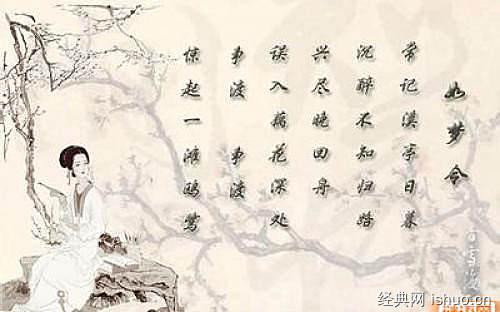 如梦令
常记溪亭日暮
沉醉不知归路
兴尽晚回舟
误入藕花深处
争渡 争渡
惊起一滩鸥鹭
经典网 ishuo.cn